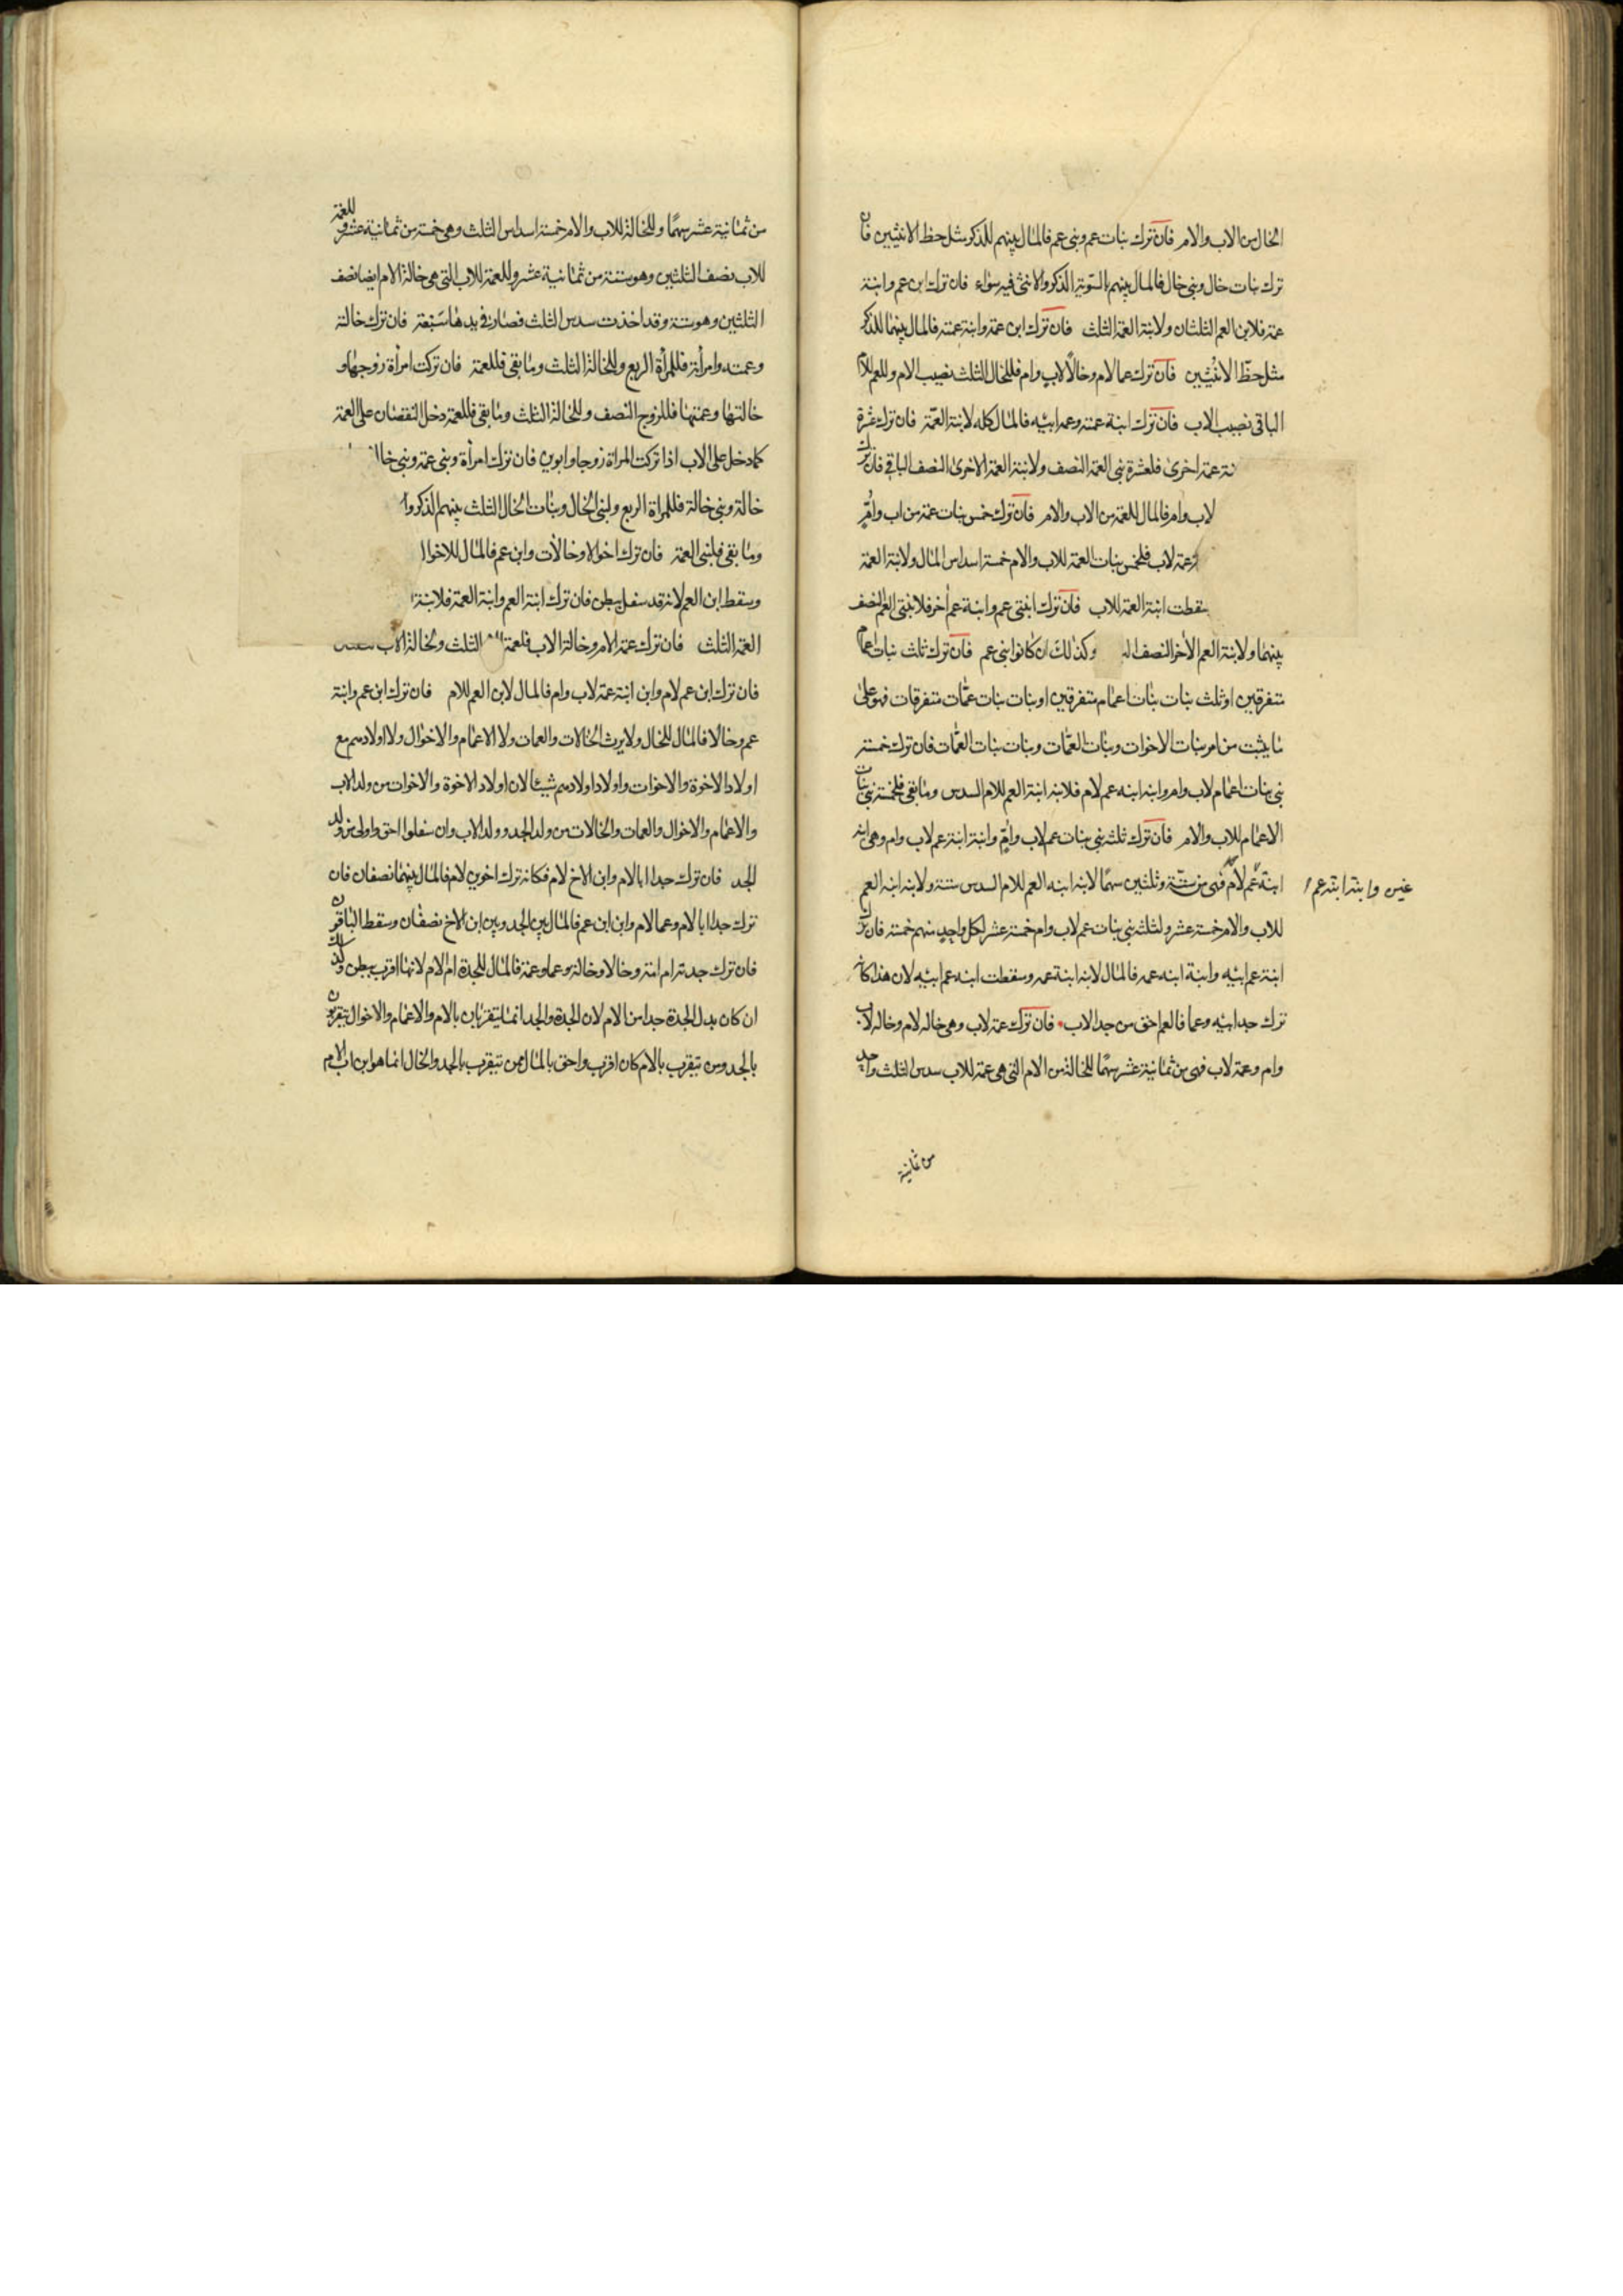 الخال من الاب والام فان ترك بنات عم وبنى عم فالمال بينهم للذكر مثل حظ الانثيين فان
ترك بنات خال وبنى خال فالمال بينهم بالسوية الذكر والانثى فيه سواء فان ترك ابن عم وابنة
عمة فلابن العم الثلثان ولابنة العمة الثلث فان ترك ابن عمة وابنة عمته فالمال بينهما للذكر
مثل حظ الانثيين فان ترك عما لام وخالا لاب وام فللخال الثلث نصيب الام وللعم للام
الباقى نصيب الاب فان ترك ابنة عمته وعم ابيه فالمال كله لابنة العمة فان ترك عشرة
نة عمة اخرى فلعشرة بنى العمة النصف ولابنة العمة الاخرى النصف الباقى فان ترك
لاب وام فالمال للعمة من الاب والام فان ترك خمس بنات عمة من اب وام
عمة لاب فلخمس بنات العمة للاب والام خمسة اسداس المال ولابنة العمة
سقطت ابنة العمة للاب فان ترك ابنتى عم وابنة عم اخر فلابنتى العم النصف
بينهما ولابنة العم الاخر النصف وكذلك ان كانوا بنى عم فان ترك ثلث بنات اعمام
متفرقين او ثلث بنات بنات اعمام متفرقين او بنات بنات عمات متفرقات فهو على
ما يثبت من امر بنات الاخوات وبنات العمات وبنات بنات العمات فان ترك خمسة
بنى بنات اعمام لاب وام وابنه ابنه عم لام فلابنه ابنة العم للام السدس وما بقى فلخمسة بنى بنات
الاعمام للاب والام فان ترك ثلثه بنى بنات عم لاب وام وابنة ابنة عم لاب وام وهى ابنه
ابنة عم لام فهى من ستة وثلثين سهما لابنه ابنه العم للام السدس ستة ولابنه ابنه العم
غيره وابنة ابنة عم
للاب والام خمسة عشر ولثلثه بنى بنات عم لاب وام خمسة عشر لكل واحد منهم خمسة فان ترك
ابنة عم ابيه وابنة ابنه عمه فالمال لابنه ابنة عمه وسقطت ابنه عم ابيه لان هذا كانه
ترك جد ابيه وعما فالعم احق من جد الاب فان ترك عمة لاب وهى خاله لام وخاله لاب
وام وعمة لاب فهى من ثمانية عشر سهما للخالة من الام التى هى عمة للاب سدس الثلث واحد
من ثمانية
من ثمانية عشر سهما وللخالة للاب والام خمسة اسداس الثلث وهى خمسة من ثمانية عشر وللعمة
للاب نصف الثلثين وهو ستة من ثمانية عشر وللعمة للاب التى هى خالة الام ايضا نصف
الثلثين وهو ستة وقد اخذت سدس الثلث فصار فى يدها سبعة فان ترك خالته
وعمته وامراته فللمراة الربع وللخالة الثلث وما بقى فللعمة فان تركت امراة زوجها و
خالتها وعمتها فللزوج النصف وللخالة الثلث وما بقى فللعمة دخل النقصان على العمة
كما دخل على الاب اذا تركت المراة زوجا وابوين فان ترك امراة وبنى عمة وبنى خال
خالة وبنى خالة فللمراة الربع ولبنى الخال وبنات الخال الثلث بينهم الذكر وا
وما بقى فلبنى العمة فان ترك اخوالا وخالات وابن عم فالمال للاخوال
وسقط ابن العم لانه قد سفل ببطن فان ترك ابنة العم وابنة العمة فلابنة
العمة الثلث فان ترك عمة الام وخالة الاب فلعمة الثلث ولخالة الاب
فان ترك ابن عم لام وابن ابنة عمة لاب وام فالمال لابن العم للام فان ترك ابن عم وابنة
عم وخالا فالمال للخال ولا يرث الخالات والعمات ولا الاعمام والاخوال ولا اولادهم مع
اولاد الاخوة والاخوات واولاد اولادهم شيئا لان اولاد الاخوة والاخوات من ولد الاب
والاعمام والاخوال والعمات والخالات من ولد الجد وولد الاب وان سفلوا احق واولى من ولد
الجد فان ترك جدا ابا لام وابن الاخ لام فكانه ترك اخوين لام فالمال بينهما نصفان فان
ترك جدا ابا لام وعما لام وابن ابن عم فالمال بين الجد وبين ابن الاخ نصفان وسقط الباقون
فان ترك جدته ام امه وخالا وخالة وعما وعمة فالمال للجدة ام الام لانها اقرب ببطن وكذلك
ان كان بدل الجدة جدا من الام لان الجدة والجد انما يتقربان بالام والاعمام والاخوال يتقربون
بالجد ومن تقرب بالام كان اقرب واحق بالمال ممن تيقرب بالجد والخال انما هو ابن اب الام